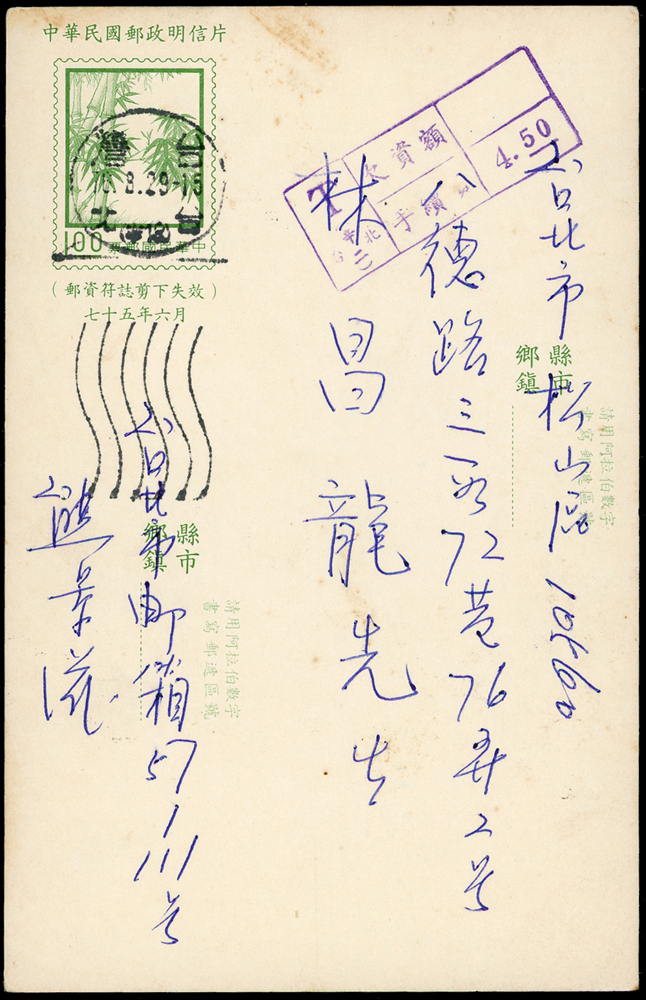 中華民國郵政明信片
台灣
8.29-15
台北
1.00
中華民國郵票
（郵資符誌剪下失效）
七十五年六月
T
欠資額
手續費
4.50
台北
台北市松山區10590
八德路三段72巷76弄2号
林昌龍先生
縣市
鄉鎮
請用阿拉伯數字
書寫郵遞區號
台北市郵箱57-111号
熊景滋
縣市
鄉鎮
請用阿拉伯數字
書寫郵遞區號